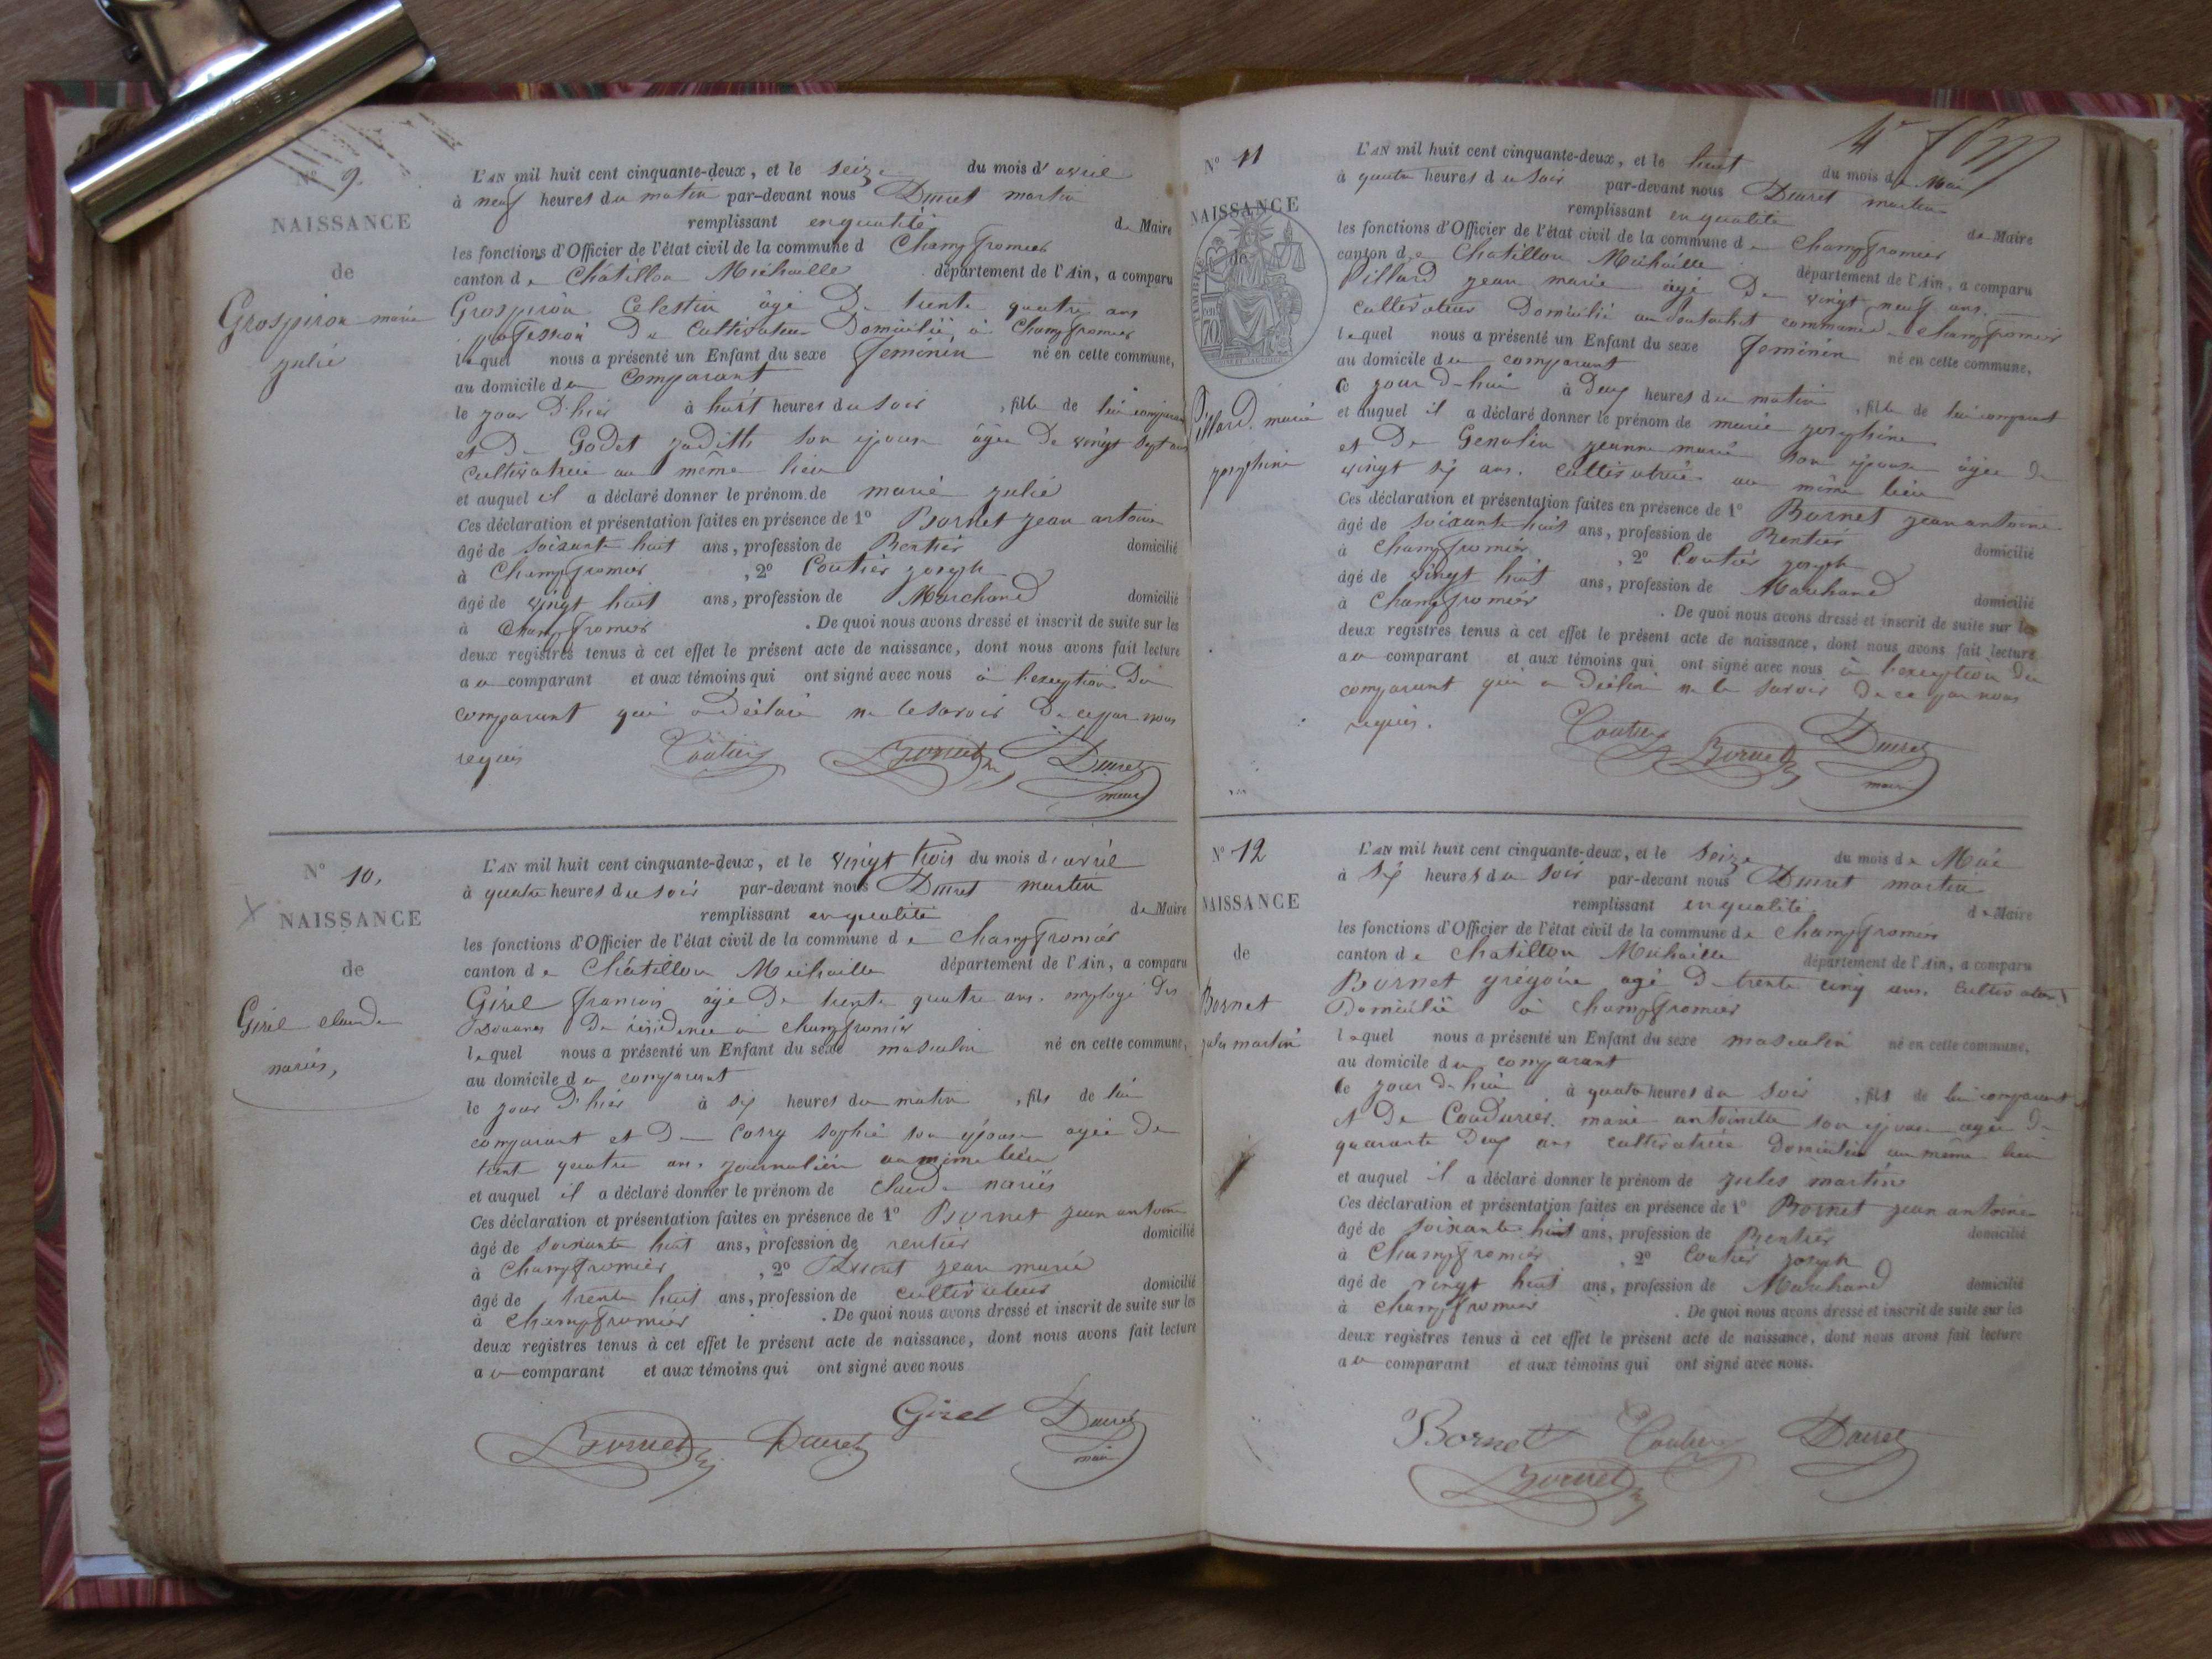 N° 9.
NAISSANCE
de
Grospiron marie
julié
L'AN mil huit cent cinquante-deux, et le seize du mois d'avril
à neuf heures du matin par-devant nous Ducret martin
remplissant en qualité de Maire
les fonctions d'Officier de l'état civil de la commune d Champfromier
canton de Châtillon Michaille département de l'Ain, a comparu
Grospiron Celestin âgé De trente quatre ans
profession De Cultivateur Domicilié à Champfromier
lequel nous a présenté un Enfant du sexe feminin né en cette commune,
au domicile du Comparant
le jour d'hier à huit heures du soir , fille de lui comparant
et De Godet judith son épouse âgée De vingt sept ans
Cultivatrice au même lieu
et auquel il a déclaré donner le prénom de marie julié
Ces déclaration et présentation faites en présence de 1° Bornet jean antoine
âgé de soixante huit ans, profession de Rentier domicilié
à Champfromier , 2° Coutier joseph
âgé de vingt huit ans, profession de Marchand domicilié
à Champfromier . De quoi nous avons dressé et inscrit de suite sur les
deux registres tenus à cet effet le présent acte de naissance, dont nous avons fait lecture
au comparant et aux témoins qui ont signé avec nous à l'exception Du
comparant qui a Déclaré ne le savoir De ce par nous
requis
Coutier Bornet Ducret
maire
N° 10,
NAISSANCE
de
Girel claude
mariés,
L'AN mil huit cent cinquante-deux, et le vingt trois du mois d'avril
à quatre heures du soir par-devant nous Ducret martin
remplissant en qualité de Maire
les fonctions d'Officier de l'état civil de la commune de Champfromier
canton de Châtillon Michaille département de l'Ain, a comparu
Girel francois âgé De trente quatre ans. employé Des
Douanes De résidence à champfromier
lequel nous a présenté un Enfant du sexe masculin né en cette commune,
au domicile du comparant
le jour D'hier à six heures du matin , fils de lui
comparant et De Cosry sophie son épouse agée De
trente quatre ans. journalière au même lieu
et auquel il a déclaré donner le prénom de claude
Ces déclaration et présentation faites en présence de 1° Bornet jean antoine
âgé de soixante huit ans, profession de rentier domicilié
à Champfromier , 2° Ducret jean marie
âgé de trente huit ans, profession de cultivateur domicilié
à Champfromier . De quoi nous avons dressé et inscrit de suite sur les
deux registres tenus à cet effet le présent acte de naissance, dont nous avons fait lecture
au comparant et aux témoins qui ont signé avec nous
Bornet Ducret Girel Ducret
maire
N° 11
NAISSANCE
de
TIMBRE
70
Pillard. marie
josephine
4e
L'AN mil huit cent cinquante-deux, et le huit du mois de Mai
à quatre heures du soir par-devant nous Ducret martin
remplissant en qualité de Maire
les fonctions d'Officier de l'état civil de la commune de Champfromier
canton de Chatillon Michaille département de l'Ain, a comparu
Pillard jean marie âgé De vingt neuf ans.
cultivateur Domicilié commune Champfromier
lequel nous a présenté un Enfant du sexe feminin né en cette commune,
au domicile du comparant
le jour D-hui à Deux heures du matin , fille de lui comparant
et auquel il a déclaré donner le prénom de marie josephine
et De Genolin jeanne marie son épouse âgée De
vingt six ans. cultivatrice au même lieu
Ces déclaration et présentation faites en présence de 1° Bornet jean antoine
âgé de soixante huit ans, profession de Rentier domicilié
à Champfromier , 2° Coutier joseph
âgé de vingt huit ans, profession de Marchand domicilié
à Champfromier . De quoi nous avons dressé et inscrit de suite sur les
deux registres tenus à cet effet le présent acte de naissance, dont nous avons fait lecture
au comparant et aux témoins qui ont signé avec nous à l'exception Du
comparant qui a Déclaré ne le savoir De ce par nous
requis.
Coutier Bornet Ducret
maire
N° 12
NAISSANCE
de
Bornet
jules martin
L'AN mil huit cent cinquante-deux, et le seize du mois de Mai
à six heures du soir par-devant nous Ducret martin
remplissant en qualité de Maire
les fonctions d'Officier de l'état civil de la commune de Champfromier
canton de Chatillon Michaille département de l'Ain, a comparu
Bornet grégoire agé De trente cinq ans. Cultivateur
Domicilié à Champfromier
lequel nous a présenté un Enfant du sexe masculin né en cette commune,
au domicile du comparant
le jour D-hui à quatre heures du soir , fils de lui comparant
et De Coudurier. marie antoinette son épouse agée De
quarante Deux ans cultivatrice Domiciliée au même lieu
et auquel il a déclaré donner le prénom de jules martin
Ces déclaration et présentation faites en présence de 1° Bornet jean antoine
âgé de soixante huit ans, profession de Rentier domicilié
à Champfromier , 2° Coutier joseph
âgé de vingt huit ans, profession de Marchand domicilié
à Champfromier . De quoi nous avons dressé et inscrit de suite sur les
deux registres tenus à cet effet le présent acte de naissance, dont nous avons fait lecture
au comparant et aux témoins qui ont signé avec nous.
Bornet Coutier Ducret
Bornet